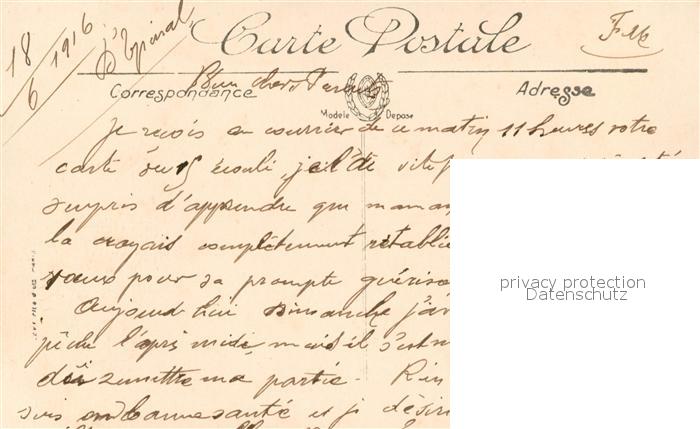 18
6 1916
d'Epinal
Carte Postale
F M
Correspondance
Bien chers Parents
Adresse
Modèle Déposé
Je reçois au courrier de ce matin 11 heures votre
carte du 15 écoulé, je
surpris d'apprendre que maman
la croyais complètement rétablie
vœux pour sa prompte guérison
Aujourd'hui Dimanche j'
pêche l'après midi mais il s'est
dû remettre ma partie - Rien
suis en bonne santé et je désire
privacy protection
Datenschutz